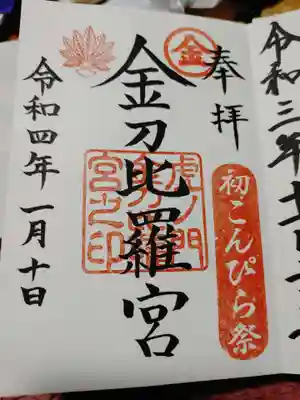 令和三年十
奉拝
金
初こんぴら祭
金刀比羅宮
虎ノ門
宮之印
令和四年一月十日